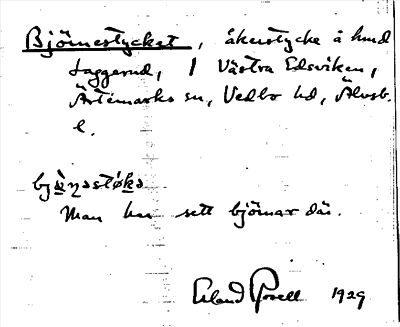 Björnestycket, åkerstycke å hmd
Laggerud, 1 Västra Edsviken,
Ärtemarks sn, Vedbo hd, Älvsb.
l.
Man har sett björnar där.
Erland Rosell 1929